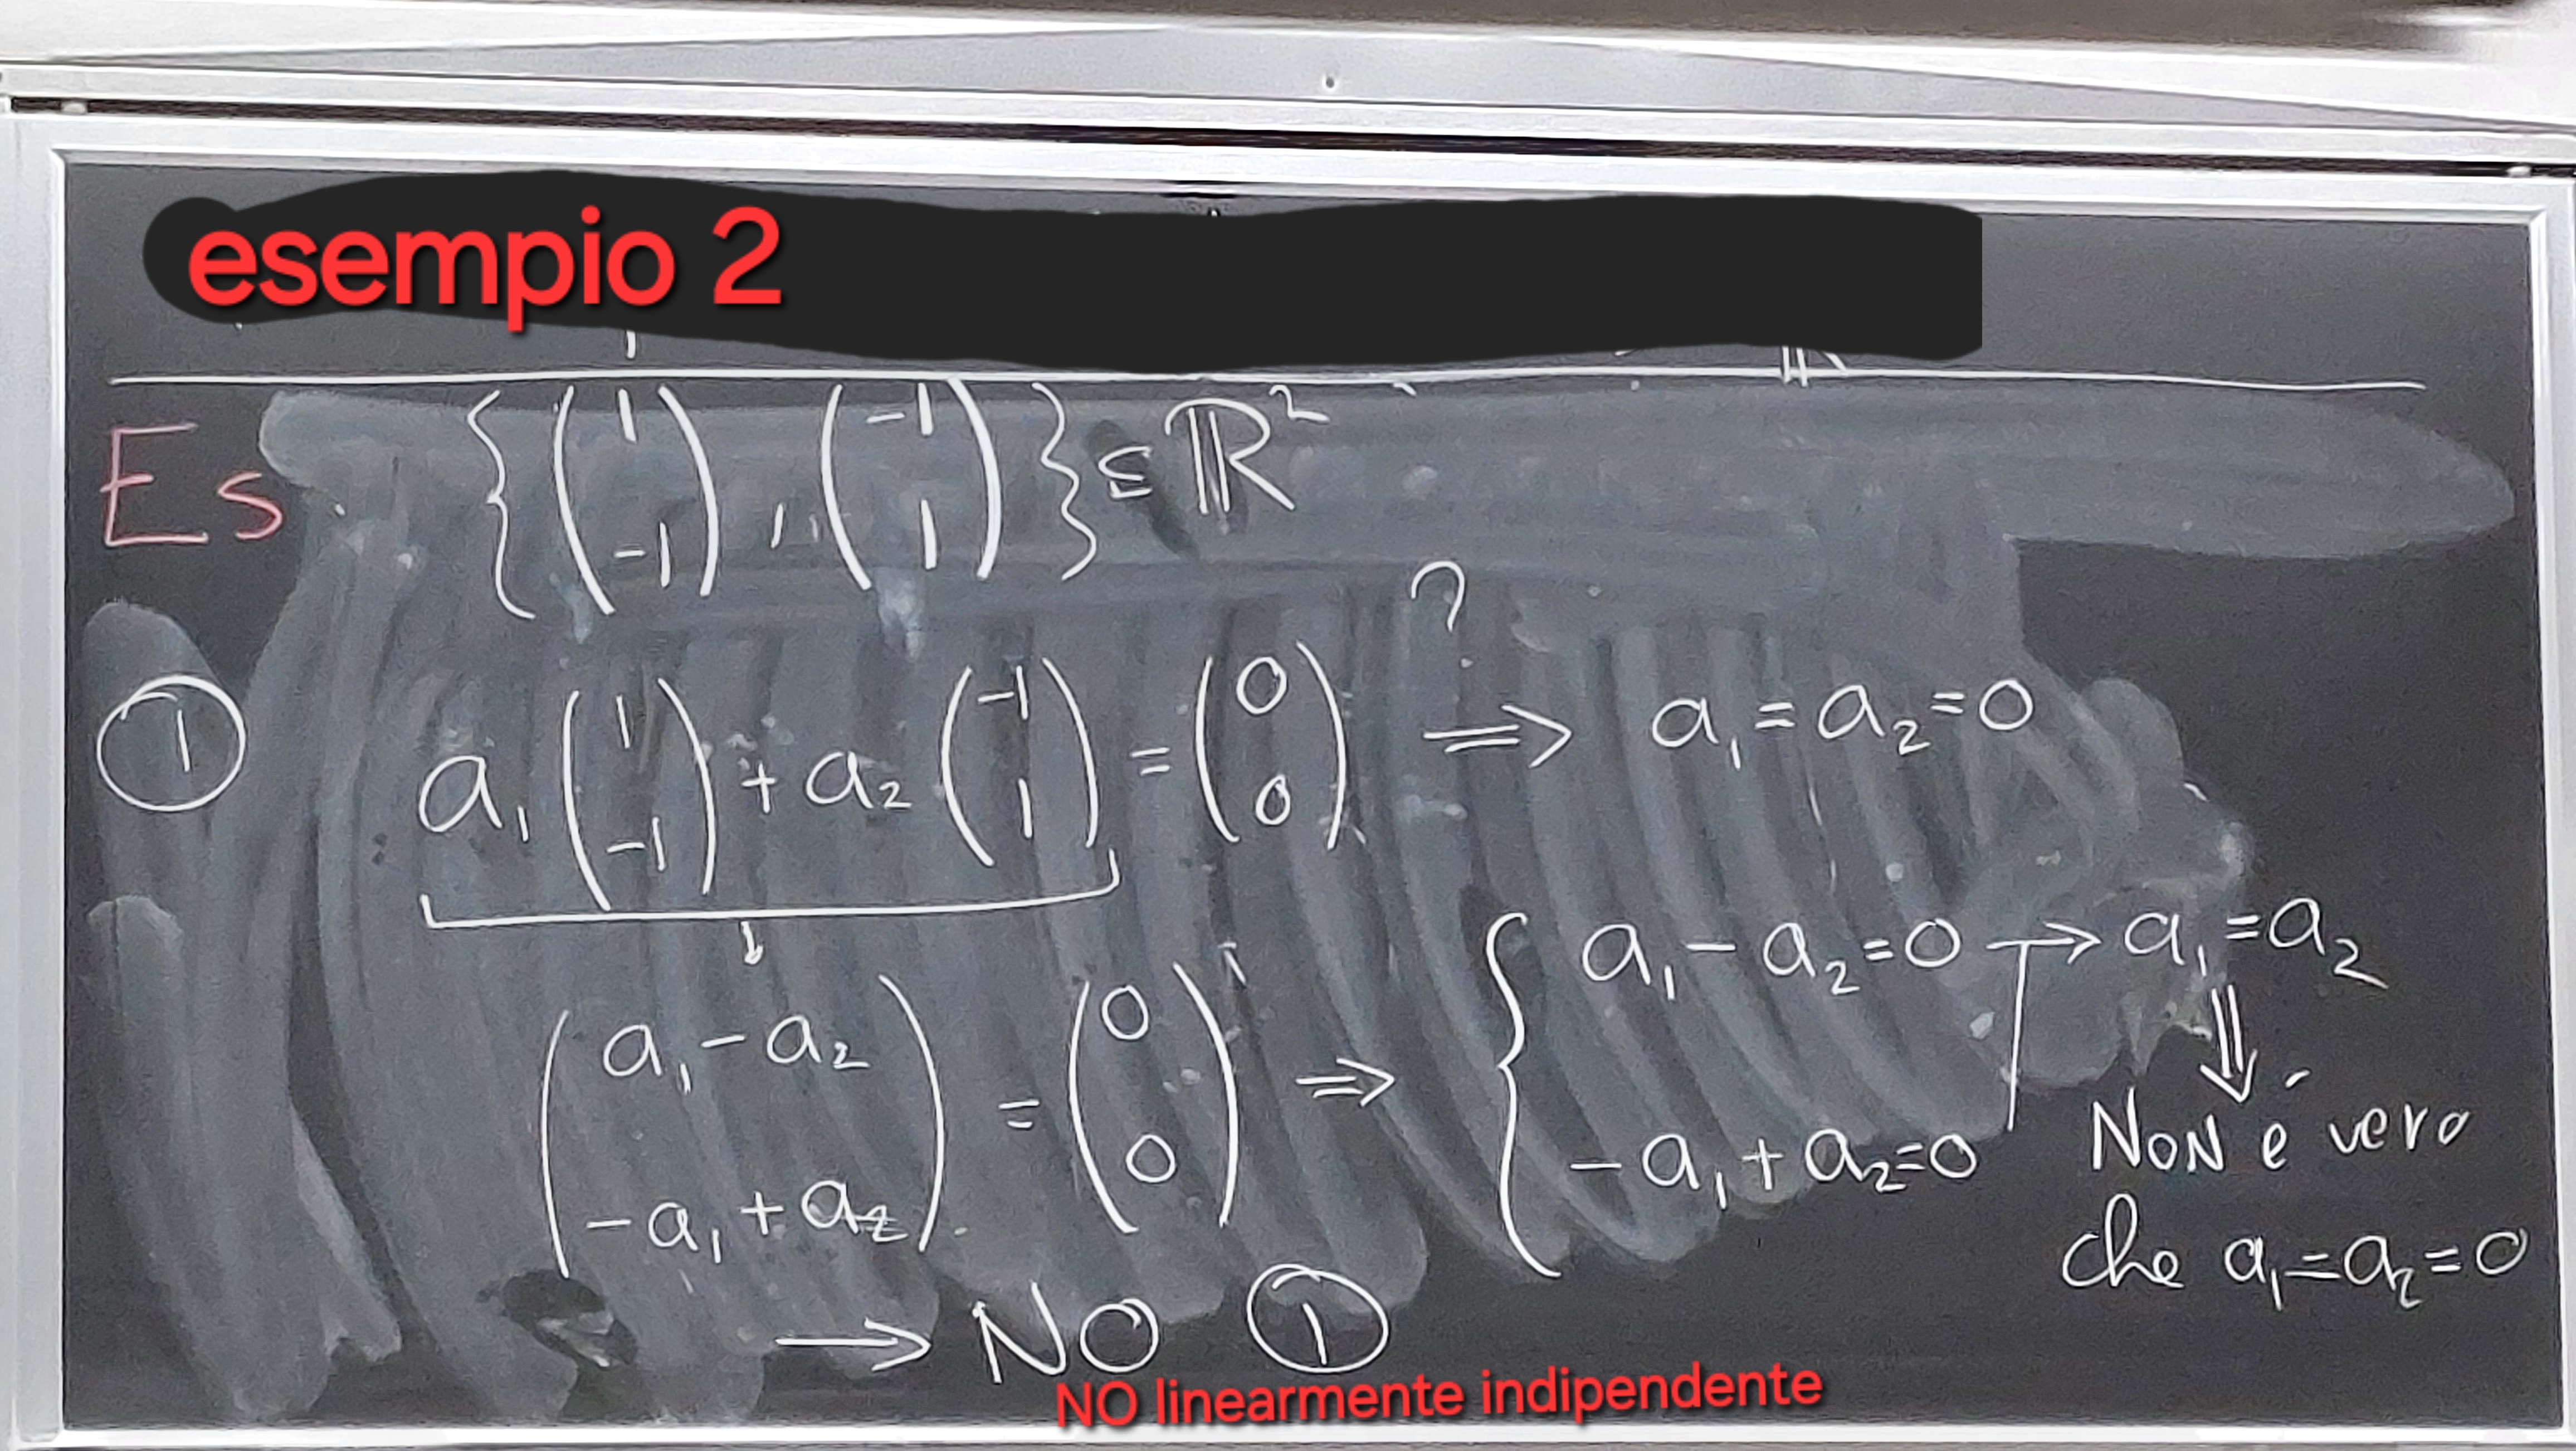 esempio 2
Es. { ( 1 -1 ) , ( -1 1 ) } ⊆ ℝ²
① a₁ ( 1 -1 ) + a₂ ( -1 1 ) = ( 0 0 ) ?⟹ a₁ = a₂ = 0
↓
( a₁ - a₂ -a₁ + a₂ ) = ( 0 0 ) ⟹ { a₁ - a₂ = 0 -a₁ + a₂ = 0 → a₁ = a₂
⇓
NON è vero
che a₁ = a₂ = 0
→ NO ①
NO linearmente indipendente